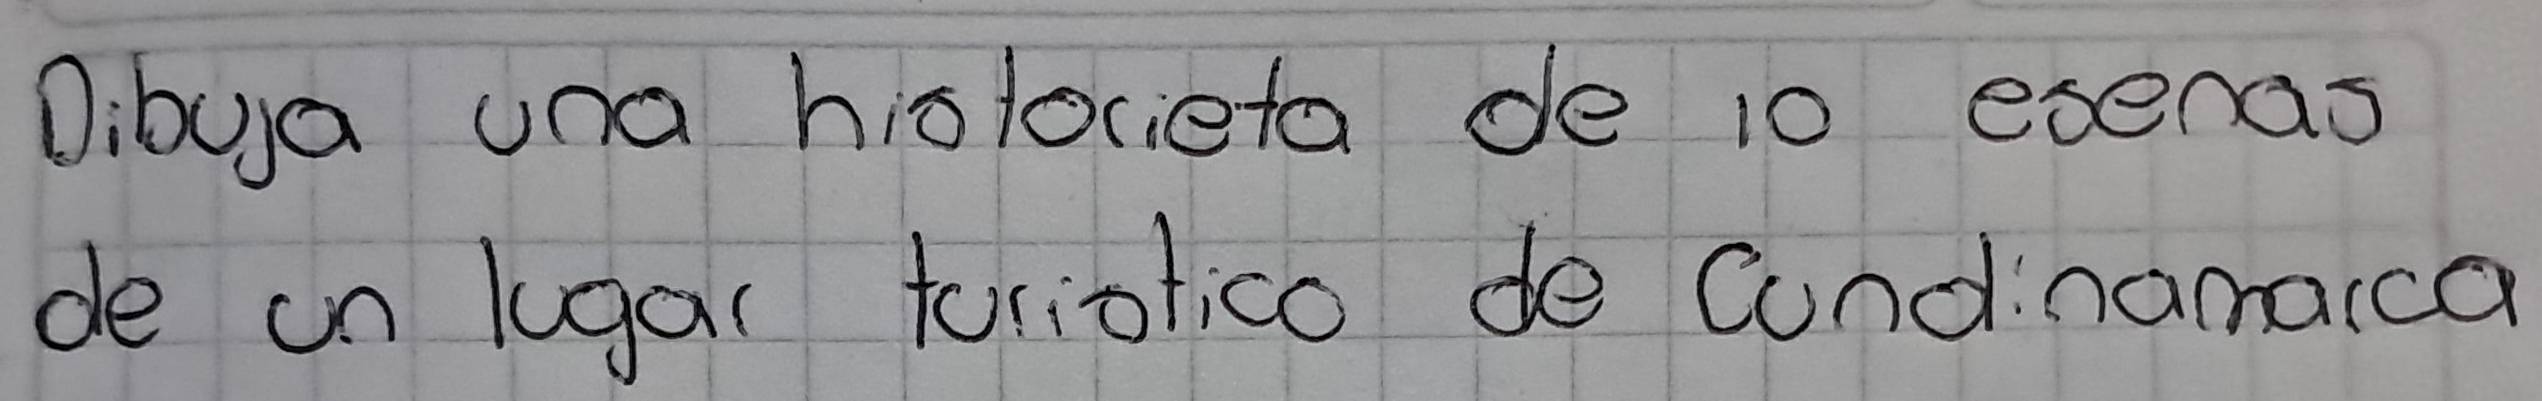 Dibuja una historieta de 10 esenas
de un lugar turistico de Cundinamarca